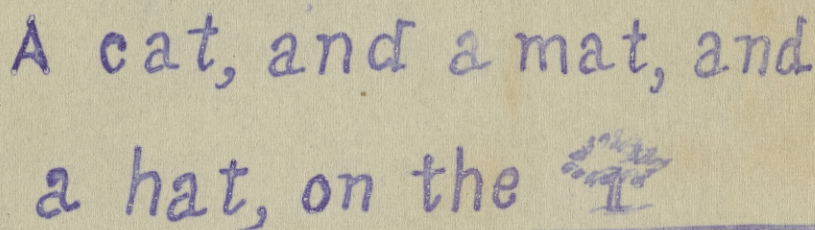 A cat, and a mat, and
a hat, on the